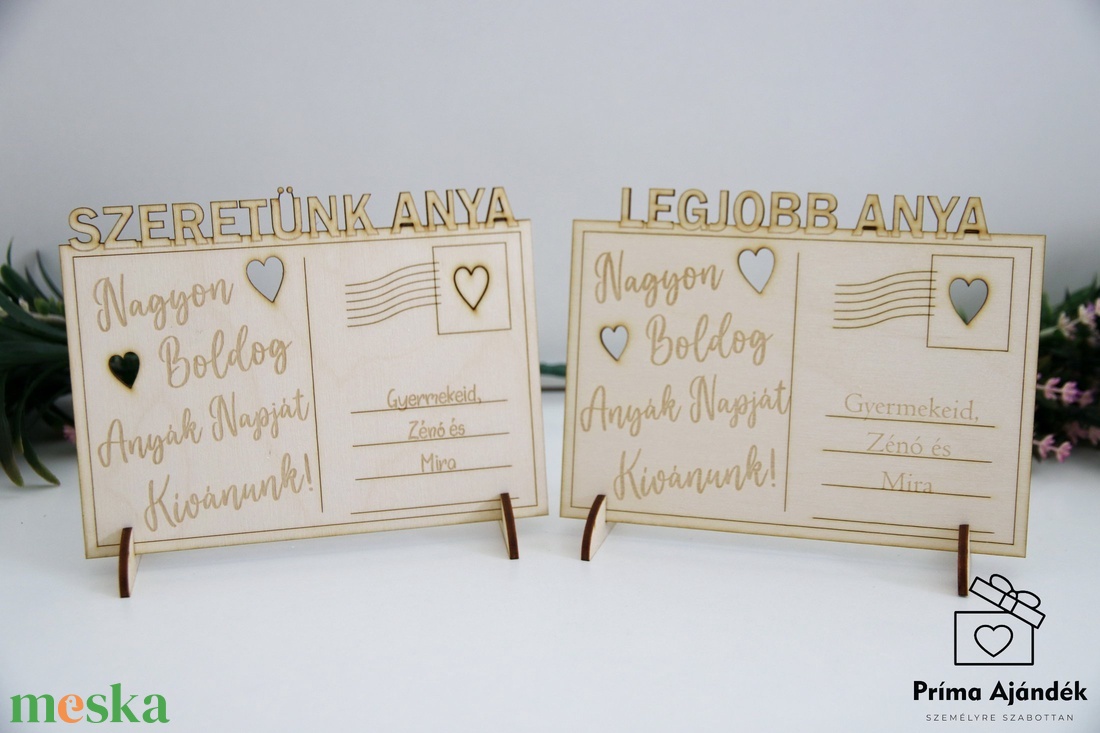 SZERETÜNK ANYA
Nagyon
Boldog
Anyák Napját
Kívánunk!
Gyermekeid,
Zénó és
Mira
LEGJOBB ANYA
Nagyon
Boldog
Anyák Napját
Kívánunk!
Gyermekeid,
Zénó és
Mira
meska
Príma Ajándék
SZEMÉLYRE SZABOTTAN